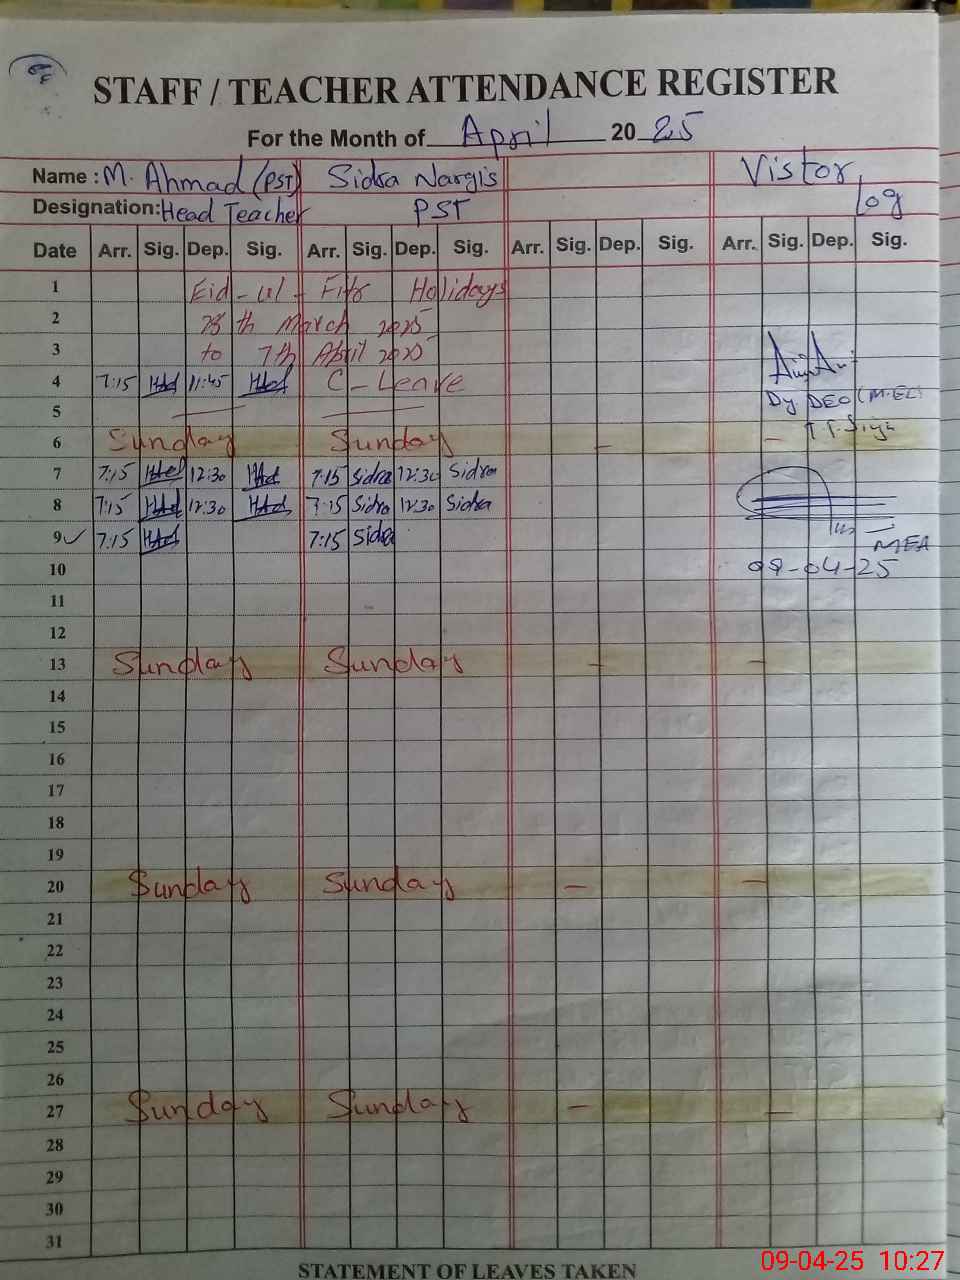 STAFF / TEACHER ATTENDANCE REGISTER
For the Month of April 20 25
Name : M. Ahmad (PST) Sidra Nargis Vistor
Designation: Head Teacher PST Log
Date Arr. Sig. Dep. Sig. Arr. Sig. Dep. Sig. Arr. Sig. Dep. Sig. Arr. Sig. Dep. Sig.
1 Eid-ul-Fitr Holidays
2 28th March 2025
3 to 7th April 2025
4 7:15 11:45 C-Leave
Dy. DEO (M.EE)
5
6 Sunday Sunday - -
7 7:15 12:30 7:15 Sidra 12:30 Sidra
8 7:15 12:30 7:15 Sidra 12:30 Sidra
9 7:15 7:15 Sidra MEA
10 09-04-25
11
12
13 Sunday Sunday - -
14
15
16
17
18
19
20 Sunday Sunday - -
21
22
23
24
25
26
27 Sunday Sunday - -
28
29
30
31
STATEMENT OF LEAVES TAKEN
09-04-25 10:27